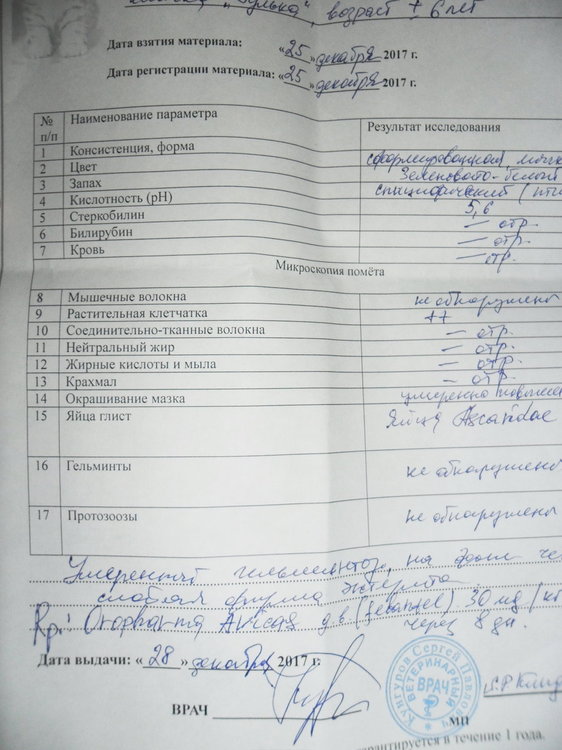 возраст ± 6 лет
Дата взятия материала: «25» декабря 2017 г.
Дата регистрации материала: «25» декабря 2017 г.
№ п/п Наименование параметра Результат исследования
1 Консистенция, форма сформированной,
2 Цвет Зеленовато-белый
3 Запах специфический
4 Кислотность (pH) 5,6
5 Стеркобилин — отр.
6 Билирубин — отр.
7 Кровь — отр.
Микроскопия помёта
8 Мышечные волокна не обнаружены
9 Растительная клетчатка ++
10 Соединительно-тканные волокна — отр.
11 Нейтральный жир — отр.
12 Жирные кислоты и мыла — отр.
13 Крахмал — отр.
14 Окрашивание мазка умеренно
15 Яйца глист Яйца
16 Гельминты не обнаружены
17 Протозоозы не обнаружены
Умеренный гельминтоз, на
слабая форма
Rp: д.в. 30 мд/кг
через 8 дн.
Дата выдачи: «28» декабря 2017 г.
ВРАЧ МП
Кунгуров Сергей
ВЕТЕРИНАРНЫЙ
ВРАЧ
в течение 1 года.